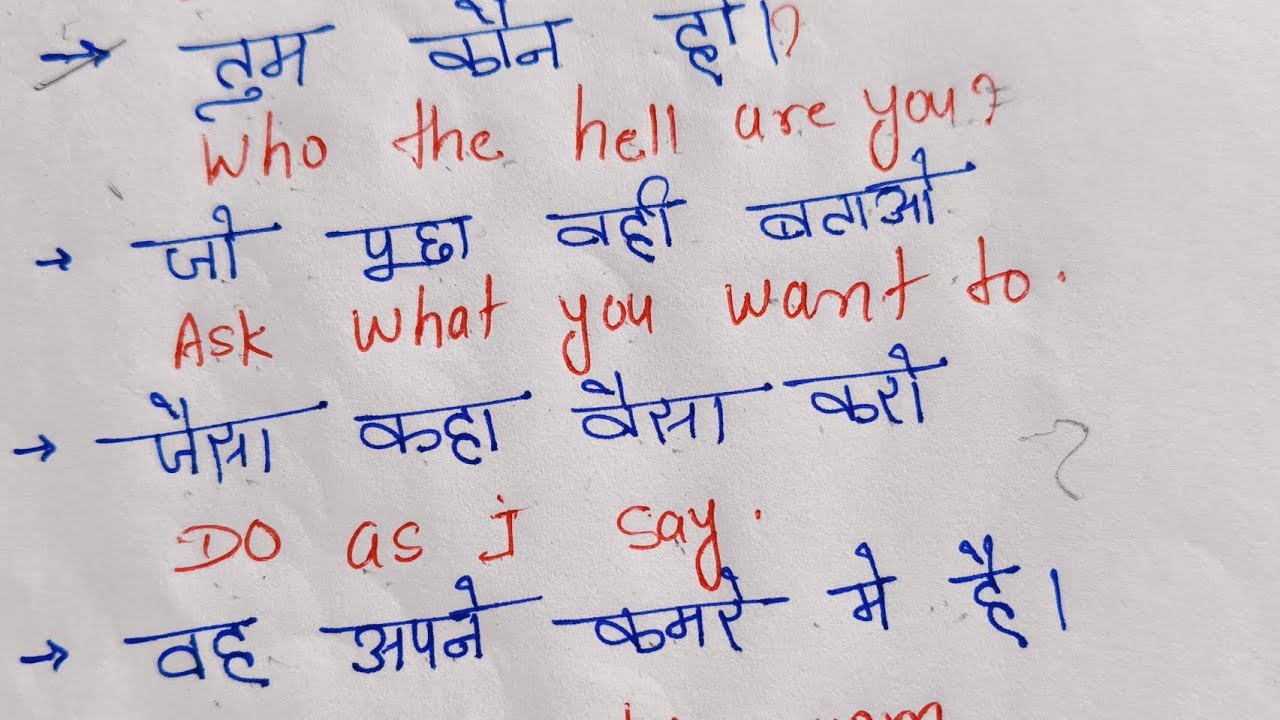 → तुम कौन हो।?
Who the hell are you?
→ जो पूछा वही बताओ
Ask what you want to.
→ जैसा कहा वैसा करो
Do as I say.
→ वह अपने कमरे मे है।